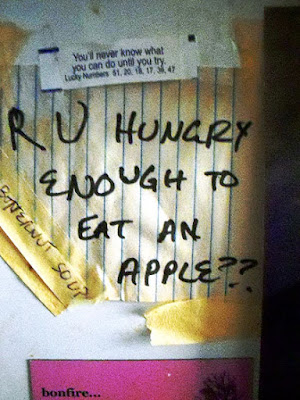 You'll never know what
you can do until you try.
Lucky Numbers 51, 20, 19, 17, 36, 47
R U HUNGRY
ENOUGH TO
EAT AN
APPLE??
BUTTERNUT SOUP
bonfire...